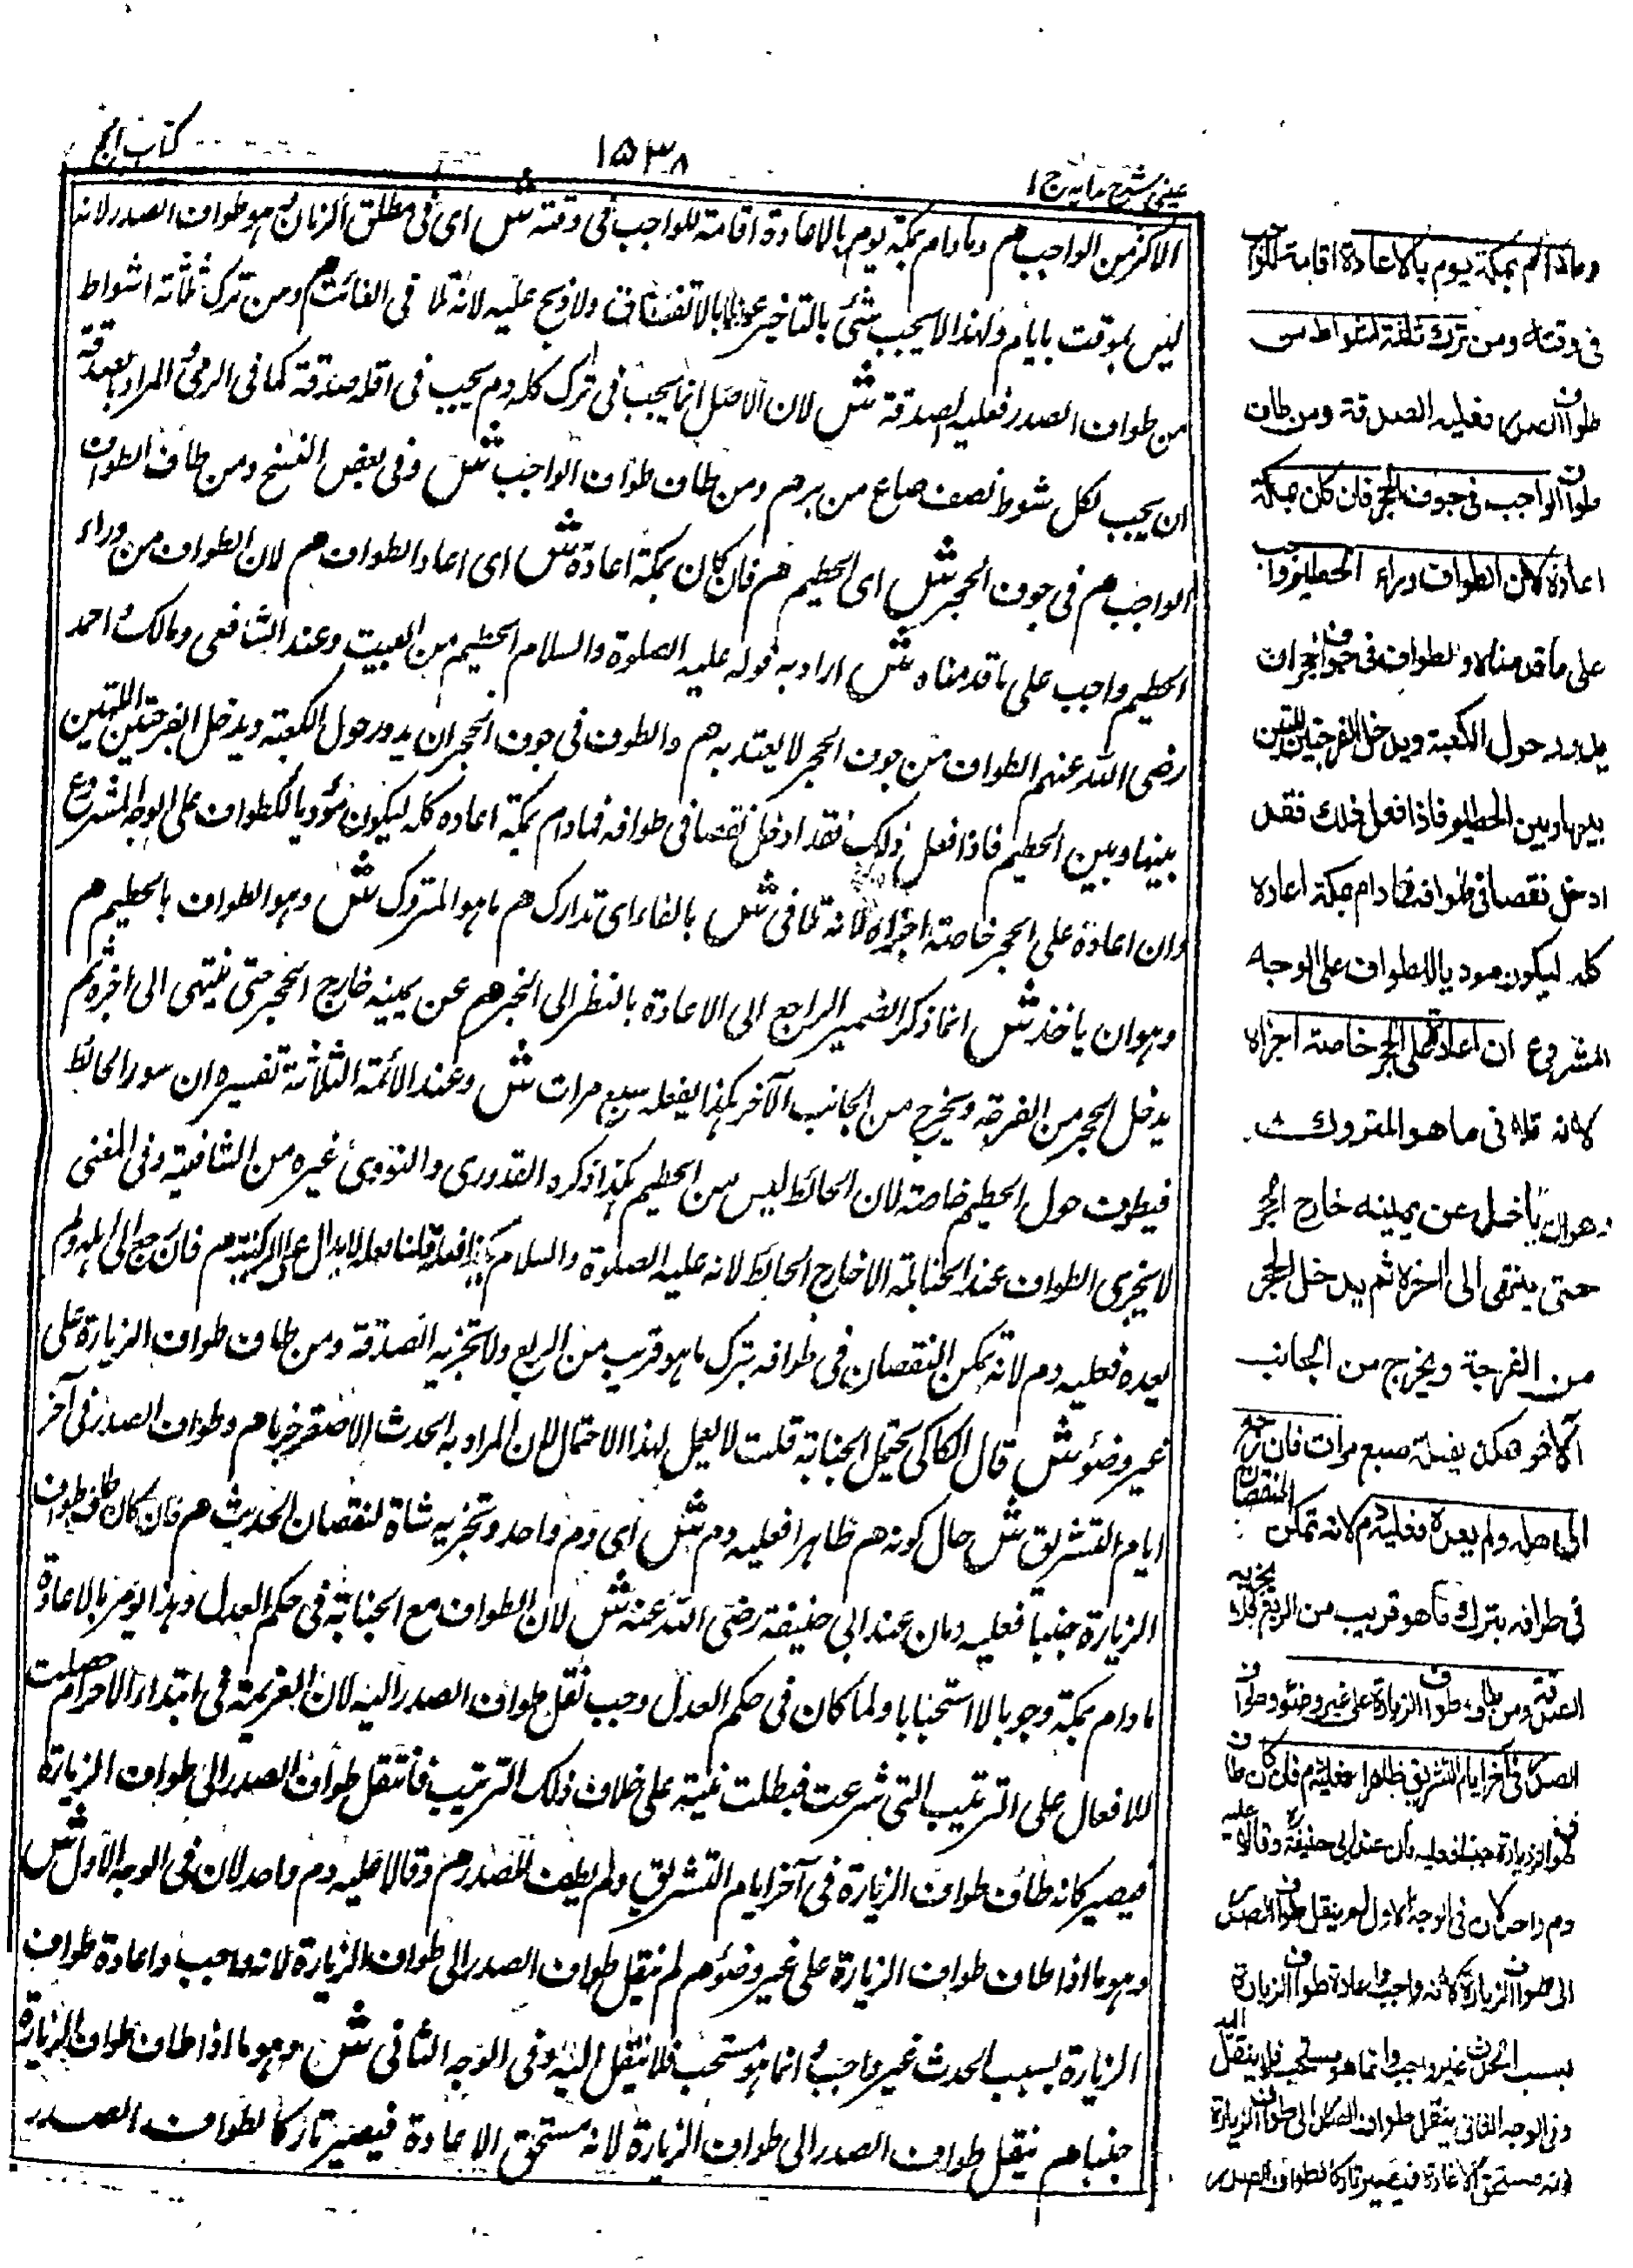 عینی شرح هدایہ ج ۱
۱۵۳۸
کتاب الحج
الاكثر من الواجب هم وما دام بمكة يومر بالاعادة اقامة للواجب فى وقته ش اى فى مطلق الزمان وهو طواف الصدر لانه
ليس بموقت بايام ولهذا لا يجب شئ بالتاخير عنها بالاتفاق ولا ذبح عليه لانه فى الفائت هم ومن ترك ثلثة اشواط
من طواف الصدر فعليه الصدقة ش لان الاصل انما يجب فى ترك كله دم يجب فى اقله صدقة كما فى الرمى المراد بالصدقة
ان يجب لكل شوط نصف صاع من بر هم ومن طاف طواف الواجب ش وفى بعض النسخ ومن طاف الطواف
الواجب هم فى جوف الحجر ش اى الحطيم هم فان كان بمكة اعاده ش اى اعاد الطواف هم لان الطواف من وراء
الحطيم واجب على ما قدمناه ش اراد به قوله عليه الصلوة والسلام الحطيم من البيت وعند الشافعى ومالك احمد
رضى الله عنهم الطواف من جوف الحجر لا يعتد به هم والطوف فى جوف الحجر ان يدور حول الكعبة ويدخل الفرجتين اللتين
بينها وبين الحطيم فاذا فعل ذلك فقد ادخل نقصا فى طوافه فما دام بمكة اعاده كله ليكون مؤديا للطواف على الوجه المشروع
وان اعاده على الحجر خاصة اجزاه لانه تلافى ش بالفاء اى تدارك هم ما هو المتروك ش وهو الطواف بالحطيم هم
وهو ان ياخذ ش انما ذكر الضمير الراجع الى الاعادة بالنظر الى الخبر هم عن يمينه خارج الحجر حتى ينتهى الى اخره ثم
يدخل الحجر من الفرجة ويخرج من الجانب الآخر هكذا يفعله سبع مرات ش وعند الائمة الثلاثة تفسيره ان سور الحائط
فيطوف حول الحطيم خاصة لان الحائط ليس من الحطيم هكذا ذكره القدورى والنووى غيره من الشافعية وفى المغنى
لا يجزى الطواف عند الحنابلة الا خارج الحائط لانه عليه الصلوة والسلام كذا فعله قلنا فعله لا يدل على الركنية هم فان رجع الى اهله ولم
يعده فعليه دم لانه تمكن النقصان فى طوافه بترك ما هو قريب من الربع ولا تجزيه الصدقة ومن طاف طواف الزيارة على
غير وضوء ش قال الكاكى يحتمل الجنابة قلت لا يعمل لهذا الاحتمال لان المراد به الحدث الاصغر هم وطواف الصدر فى آخر
ايام التشريق ش حال كونه هم ظاهرا فعليه دم ش اى دم واحد وتجزيه شاة لنقصان الحديث هم فان كان طاف طواف
الزيارة جنبا فعليه دمان عند ابى حنيفة رضى الله عنه ش لان الطواف مع الجنابة فى حكم العدل وهذا يومر بالاعادة
ما دام بمكة وجوبا لا استحبابا ولما كان فى حكم العدل وجب نقل طواف الصدر اليه لان العزيمة فى ابتداء الاحرام حصلت
للافعال على الترتيب التى شرعت فبطلت نيته على خلاف ذلك الترتيب فانتقل طواف الصدر الى طواف الزيارة
فيصير كانه طاف طواف الزيارة فى آخر ايام التشريق ولم يطف للصدر هم وقالا عليه دم واحد لان فى الوجه الاول ش
وهو ما اذا طاف طواف الزيارة على غير وضوء هم لم ينقل طواف الصدر الى طواف الزيارة لانه واجب واعادة طواف
الزيارة بسبب الحدث غير واجب انما هو مستحب فلا ينقل اليه وفى الوجه الثانى ش وهو ما اذا طاف طواف الزيارة
جنبا هم ينقل طواف الصدر الى طواف الزيارة لانه مستحق الاعادة فيصير تاركا لطواف الصدر
وما دام بمكة يومر بالاعادة اقامة للواجب
فى وقته ومن ترك ثلثة اشواط من
طواف الصدر فعليه الصدقة ومن طاف
طواف الواجب فى جوف الحجر فان كان بمكة
اعاده لان الطواف وراء الحطيم واجب
على ما قدمناه والطواف فى جوف الحجر ان
يدور حول الكعبة ويدخل الفرجتين اللتين
بينها وبين الحطيم فاذا فعل ذلك فقد
ادخل نقصا فى طوافه فما دام بمكة اعاده
كله ليكون موديا للطواف على الوجه
المشروع ان اعاده على الحجر خاصة اجزاه
لانه تلافى ما هو المتروك
وهو ان ياخذ عن يمينه خارج الحجر
حتى ينتهى الى اخره ثم يدخل الحجر
من الفرجة ويخرج من الجانب
الآخر هكذا يفعله سبع مرات فان رجع
الى اهله ولم يعده فعليه دم لانه تمكن النقصان
فى طوافه بترك ما هو قريب من الربع ولا يجزيه
الصدقة ومن طاف طواف الزيارة على غير وضوء وطواف
الصدر فى آخر ايام التشريق طاهرا فعليه دم فان كان طاف
طواف الزيارة جنبا فعليه دمان عند ابى حنيفة وقالا عليه
دم واحد لان فى الوجه الاول لم ينقل طواف الصدر
الى طواف الزيارة لانه واجب واعادة طواف الزيارة
بسبب الحدث غير واجب وانما هو مستحب فلا ينقل اليه
وفى الوجه الثانى ينقل طواف الصدر الى طواف الزيارة
لانه مستحق الاعادة فيصير تاركا لطواف الصدر